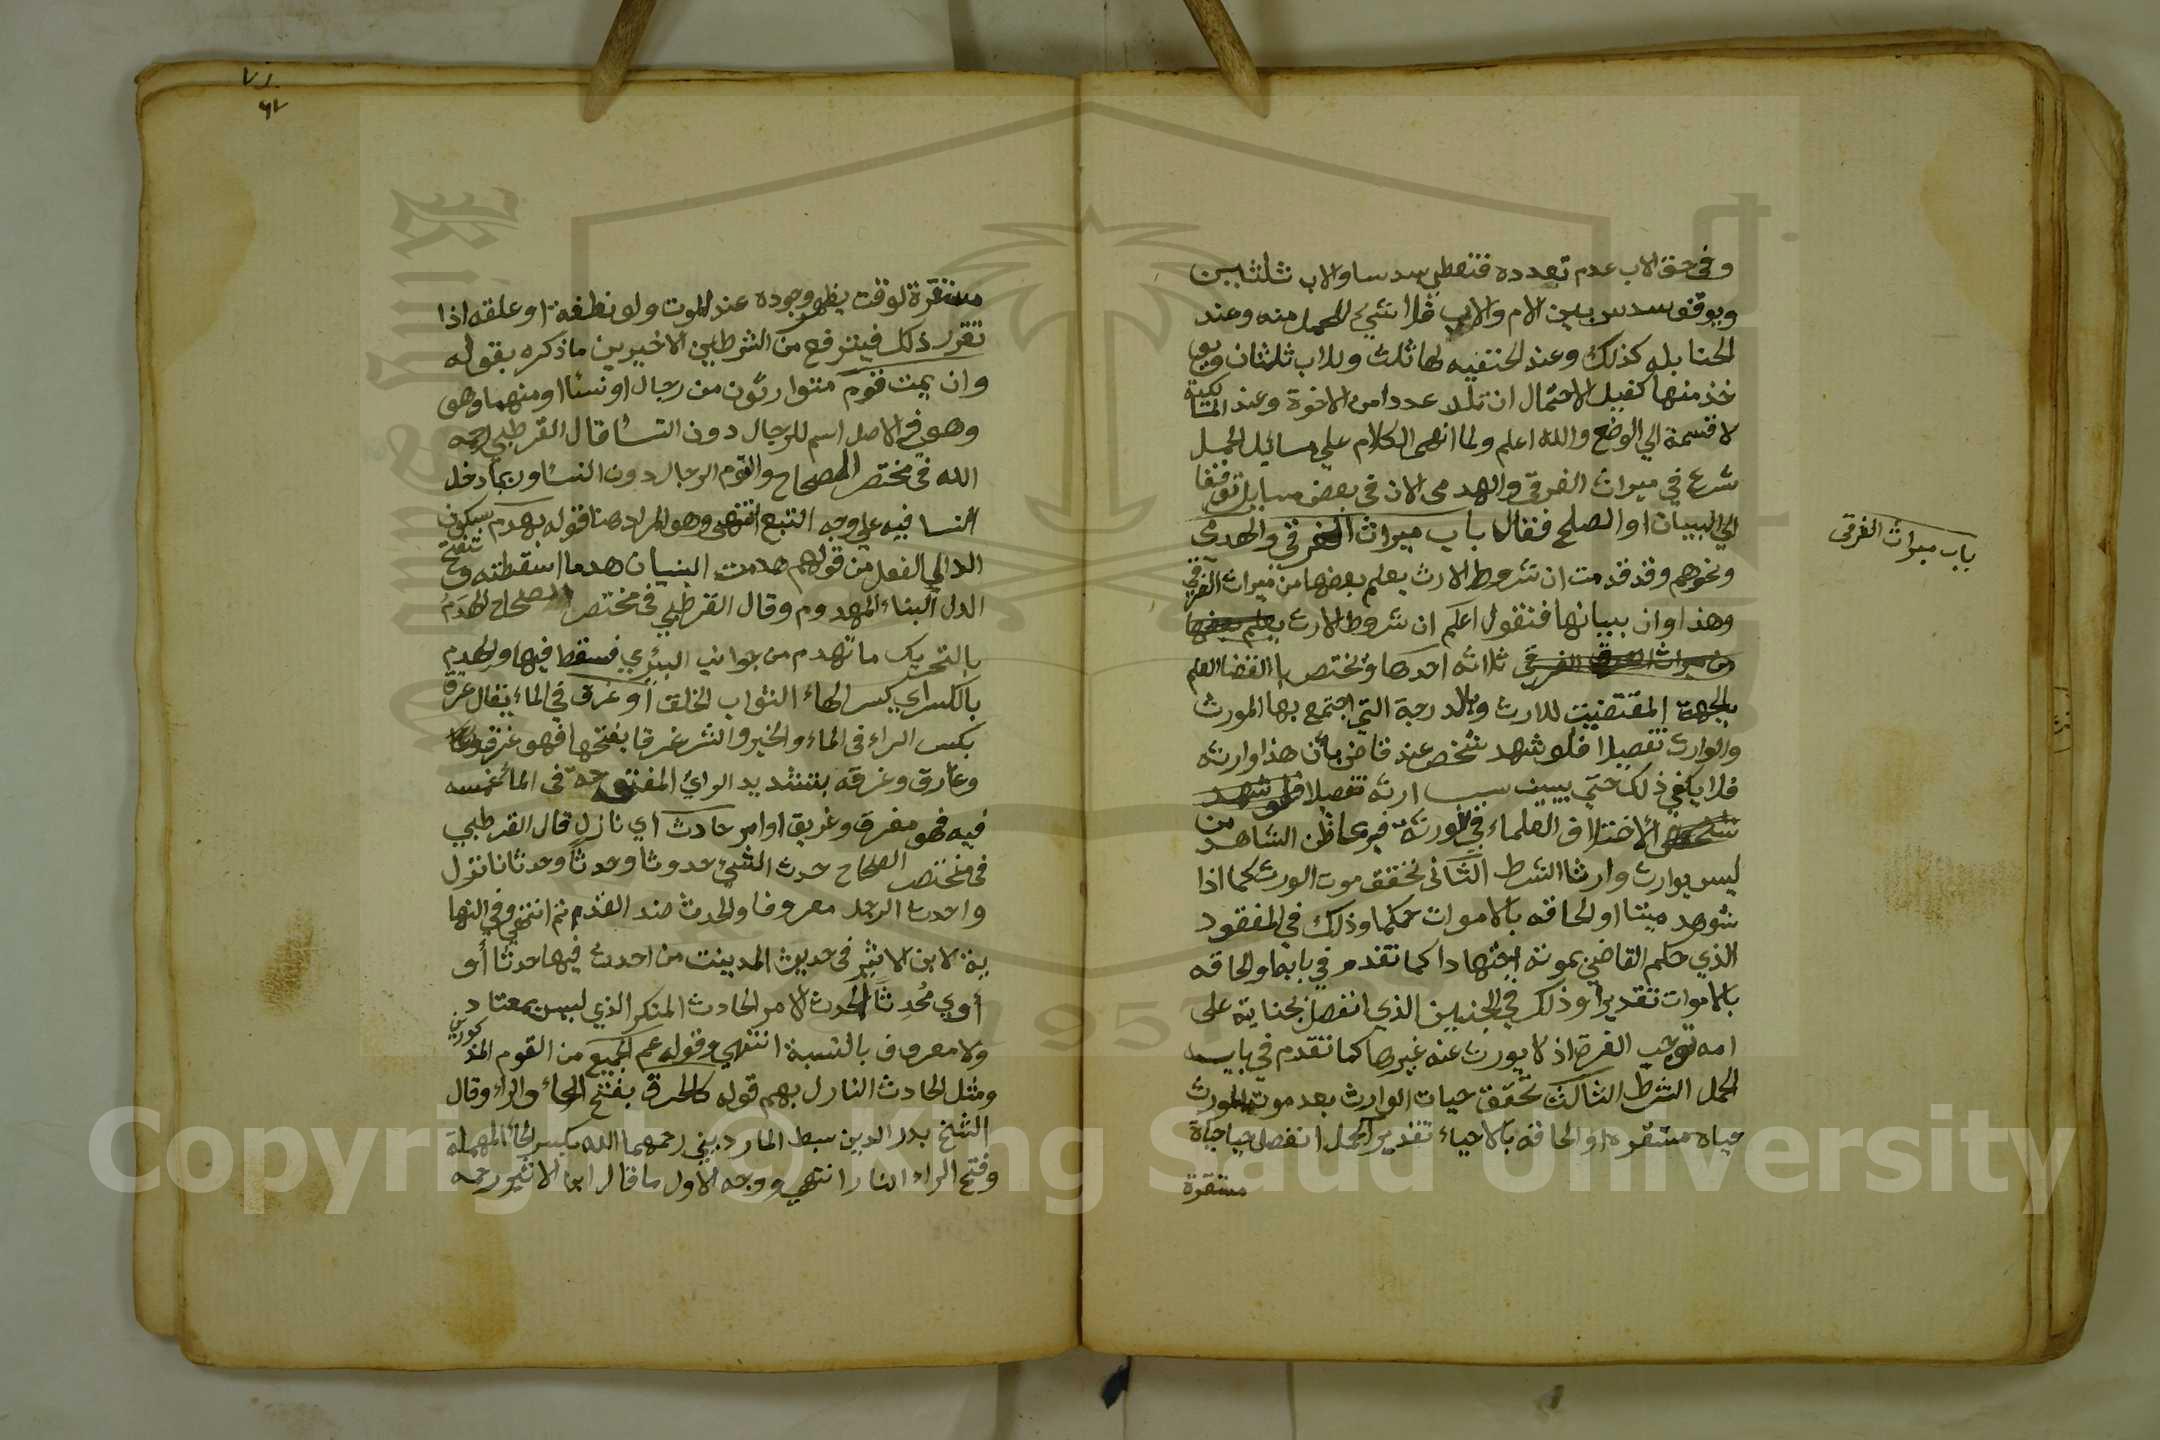 وفي حق الاب عدم تعدده فتعطي سدسا والاب ثلثا بين
ويوقف سدس بين الام والاب فلا شيء للحمل منه وعند
الحنابله كذلك وعند الحنفيه لها ثلث وللاب ثلثان ويو
خذ منها كفيل لاحتمال ان تلد عددا من الاخوة وعند المالكية
لا قسمة الي الوضع والله اعلم ولما انهى الكلام علي مسائل الحمل
شرع في ميراث الغرقى والهدمى الان في بعض مسايل توقفا
الي البيان او الصلح فقال باب ميراث الغرقى والهدمى
ونحوهم وقد قدمت ان شروط الارث يعلم بعضها من ميراث الغرقى
وهذا اوان بيانها فنقول اعلم ان شروط الارث يعلم بعضها
من ميراث الغرقى ثلاثه احدها وتختص بالقضا العلم
بالجهة المقتضيت للارث وبالدرجة التي اجتمع بها المورث
والوارث تفصيلا فلو شهد شخص عند قاض بأن هذا وارثه
فلا يكفي ذلك حتي يبين سبب ارثه تفصيلا فلو شهد
شخص لاختلاف العلماء في الورثة فربما ظن الشاهد من
ليس بوارث وارثا الشرط الثانى تحقق موت المورث كما اذا
شوهد ميتا او الحاقه بالاموات حكما وذلك في المفقود
الذي حكم القاضي بموته اجتهادا كما تقدم في بابه او الحاقه
بالاموات تقديرا وذلك في الجنين الذي انفصل بجناية على
امه توجب الغرة اذ لا يورث عنه غيرها كما تقدم في باب
الحمل الشرط الثالث تحقق حيات الوارث بعد موت المورث
حياه مستقره او الحاقه بالاحياء تقديرا كحمل انفصل حيا حياة
مستقرة
باب ميراث الغرقى
٧١
٦٧
مستقرة لوقت يظهر وجوده عند الموت ولو نطفة او علقه اذا
تقرر ذلك فيتفرع من الشرطين الاخيرين ما ذكره بقوله
وان يمت قوم متوارثون من رجال او نسا او منهما وهو
وهو في الاصل اسم للرجال دون النسا قال القرطبي رحمه
الله في مختصر الصحاح والقوم الرجال دون النسا وربما دخل
النسا فيه علي وجه التبع انتهى وهو المراد هنا قوله بهدم بسكون
الدال الفعل من قولهم هدمت البنيان هدما اسقطته وبفتح
الدال البناء المهدوم وقال القرطبي في مختصر الصحاح الهدَم
بالتحريك ما تهدم من جوانب البئر فسقط فيها والهدم
بالكسر اي بكسر الهاء الثواب الخلق أو غرق في الماء يقال غرق
بكسر الراء في الماء والخير والشر غرقا بفتحها فهو غرق
وغارق وغرقه بتشديد الراي المفتوحة في الماء غمسه
فيه فهو مغرق وغريق او امر حادث اي نازل قال القرطبي
في مختصر الصحاح حدث الشيء حدوثا وحدثا وحدثانا نزل
واحدث الرجل معروفا والحدث ضد القدم ثم انتهى وفي النها
ية لابن الاثير في حديث المدينت من احدث فيها حدثا أو
أوي مُحدثا الحدث الامر الحادث المنكر الذي ليس بمعتاد
ولا معروف بالسنة انتهي وقوله عم الجميع من القوم المذكورين
ومثل الحادث النازل بهم قوله كالحرق بفتح الحاء والراء وقال
الشيخ بدر الدين سبط المارديني رحمهما الله بكسر الحاء المهملة
وفتح الراء النار انتهي ووجه الاول ما قال ابن الاثير رحمه
Copyright © King Saud University
1957